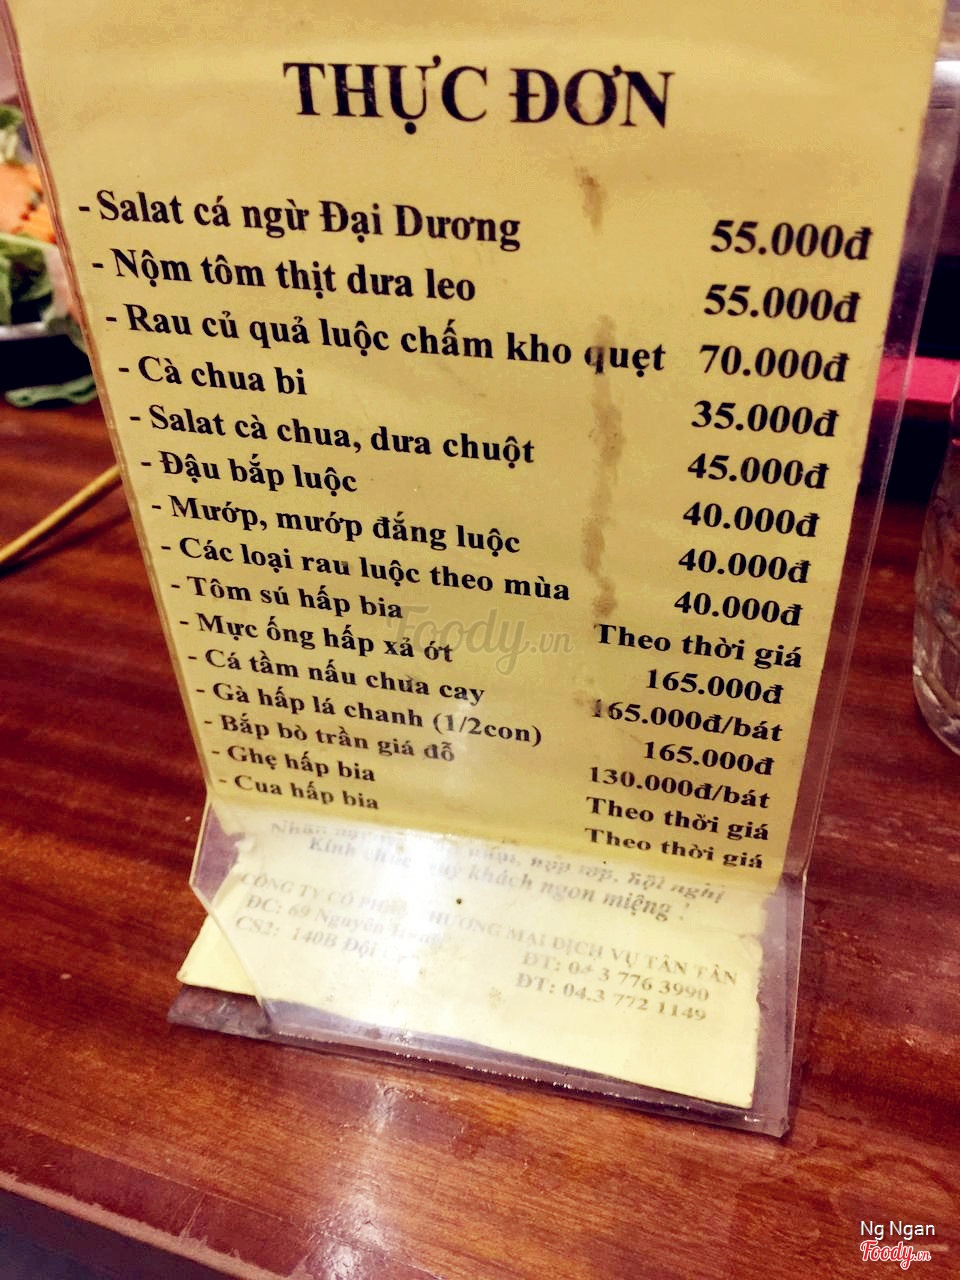 THỰC ĐƠN
- Salat cá ngừ Đại Dương 55.000đ
- Nộm tôm thịt dưa leo 55.000đ
- Rau củ quả luộc chấm kho quẹt 70.000đ
- Cà chua bi 35.000đ
- Salat cà chua, dưa chuột 45.000đ
- Đậu bắp luộc 40.000đ
- Mướp, mướp đắng luộc 40.000đ
- Các loại rau luộc theo mùa 40.000đ
- Tôm sú hấp bia Theo thời giá
- Mực ống hấp xả ớt 165.000đ
- Cá tầm nấu chua cay 165.000đ/bát
- Gà hấp lá chanh (1/2con) 165.000đ
- Bắp bò trần giá đỗ 130.000đ/bát
- Ghẹ hấp bia Theo thời giá
- Cua hấp bia Theo thời giá
Nhận hội nghị
Kính chúc quý khách ngon miệng !
CÔNG TY CỔ PHẦN THƯƠNG MẠI DỊCH VỤ TÂN TÂN
ĐC: 69 Nguyễn ĐT: 04 3 776 3990
CS2: 140B Đội ĐT: 04.3 772 1149
Foody.vn
Ng Ngan
Foody.vn